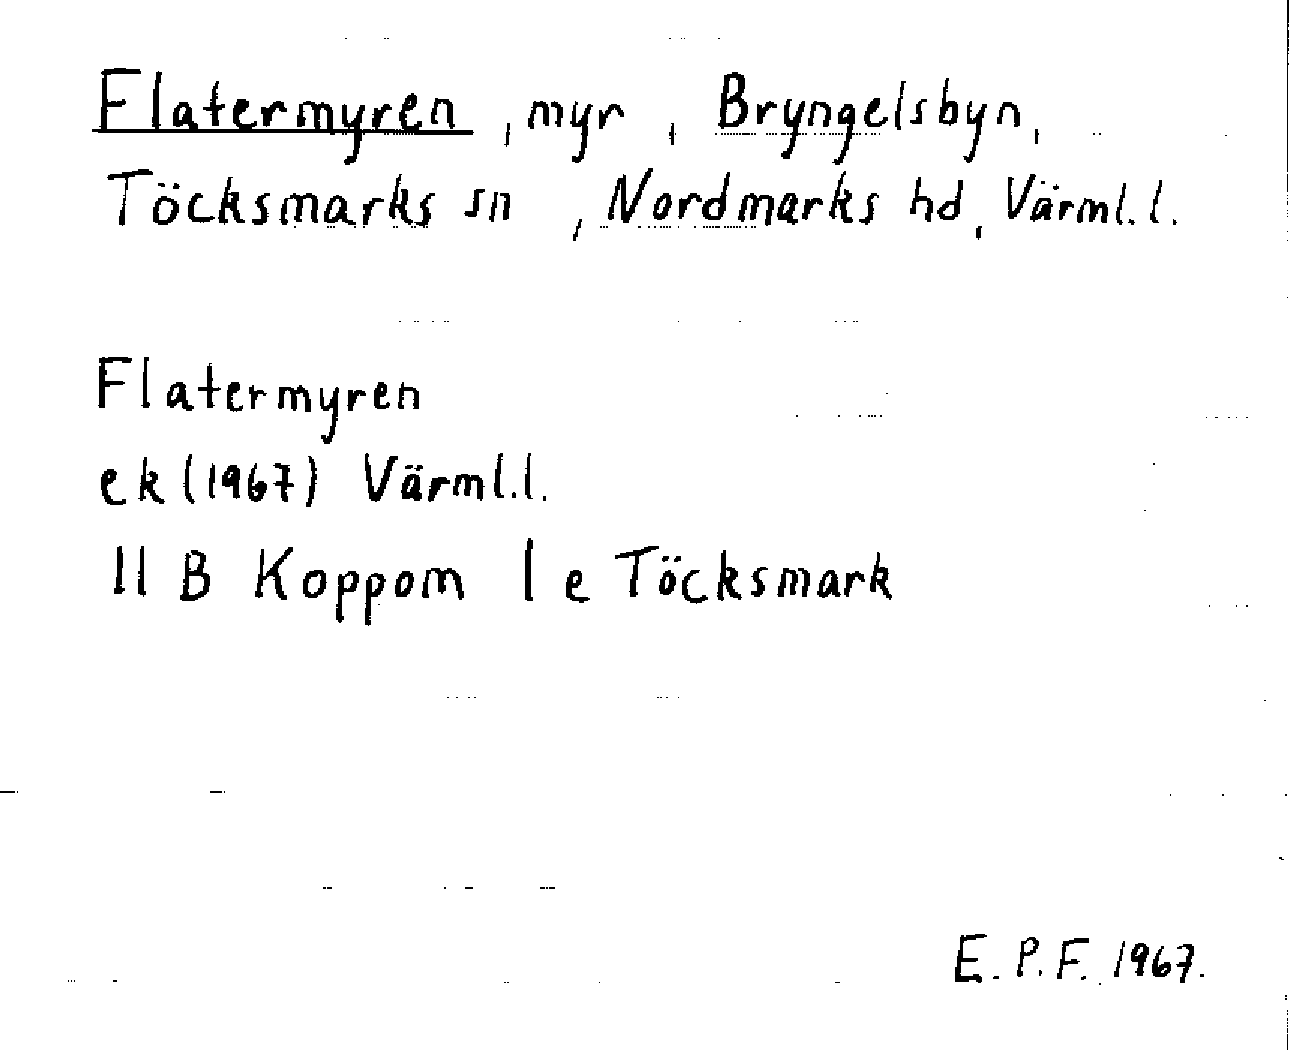 Flatermyren, myr, Bryngelsbyn,
Töcksmarks sn, Nordmarks hd, Värml.l.
Flatermyren
ek (1967) Värml.l.
11 B Koppom 1 e Töcksmark
E.P.F. 1967.